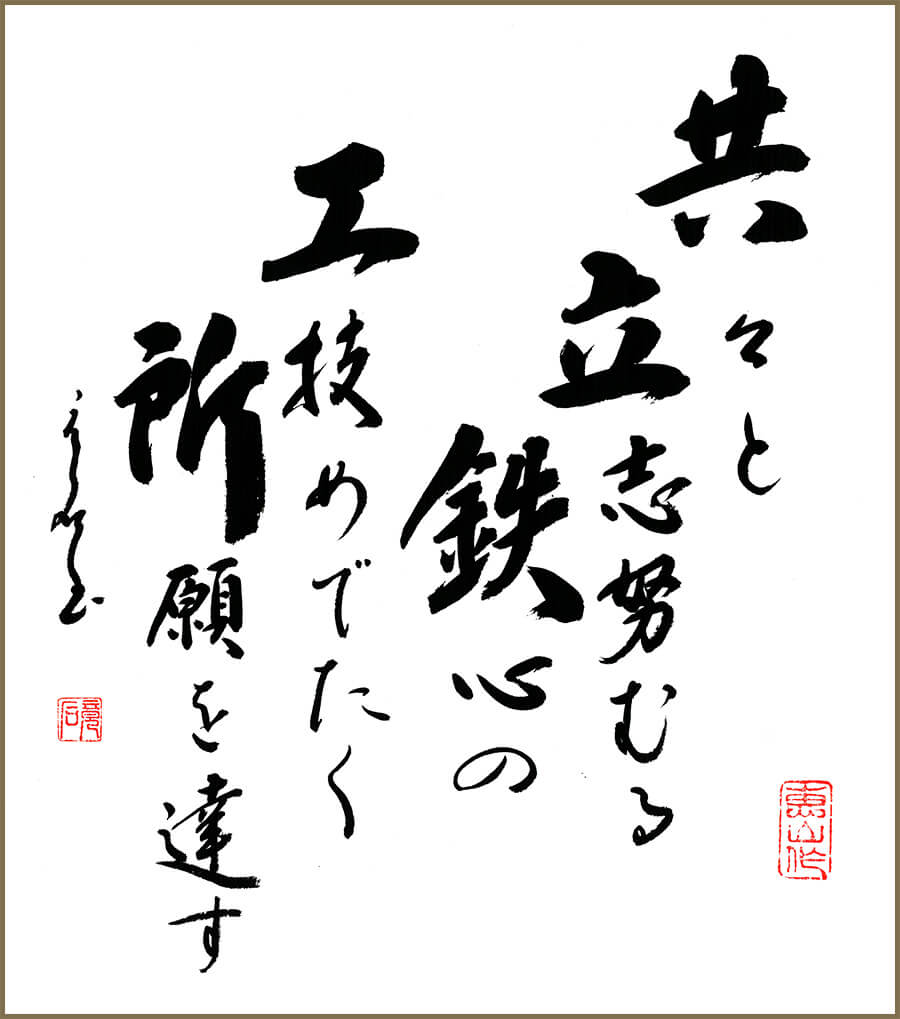 共々と
立志努むる
鉄心の
工技めでたく
所願を達す
恵山作